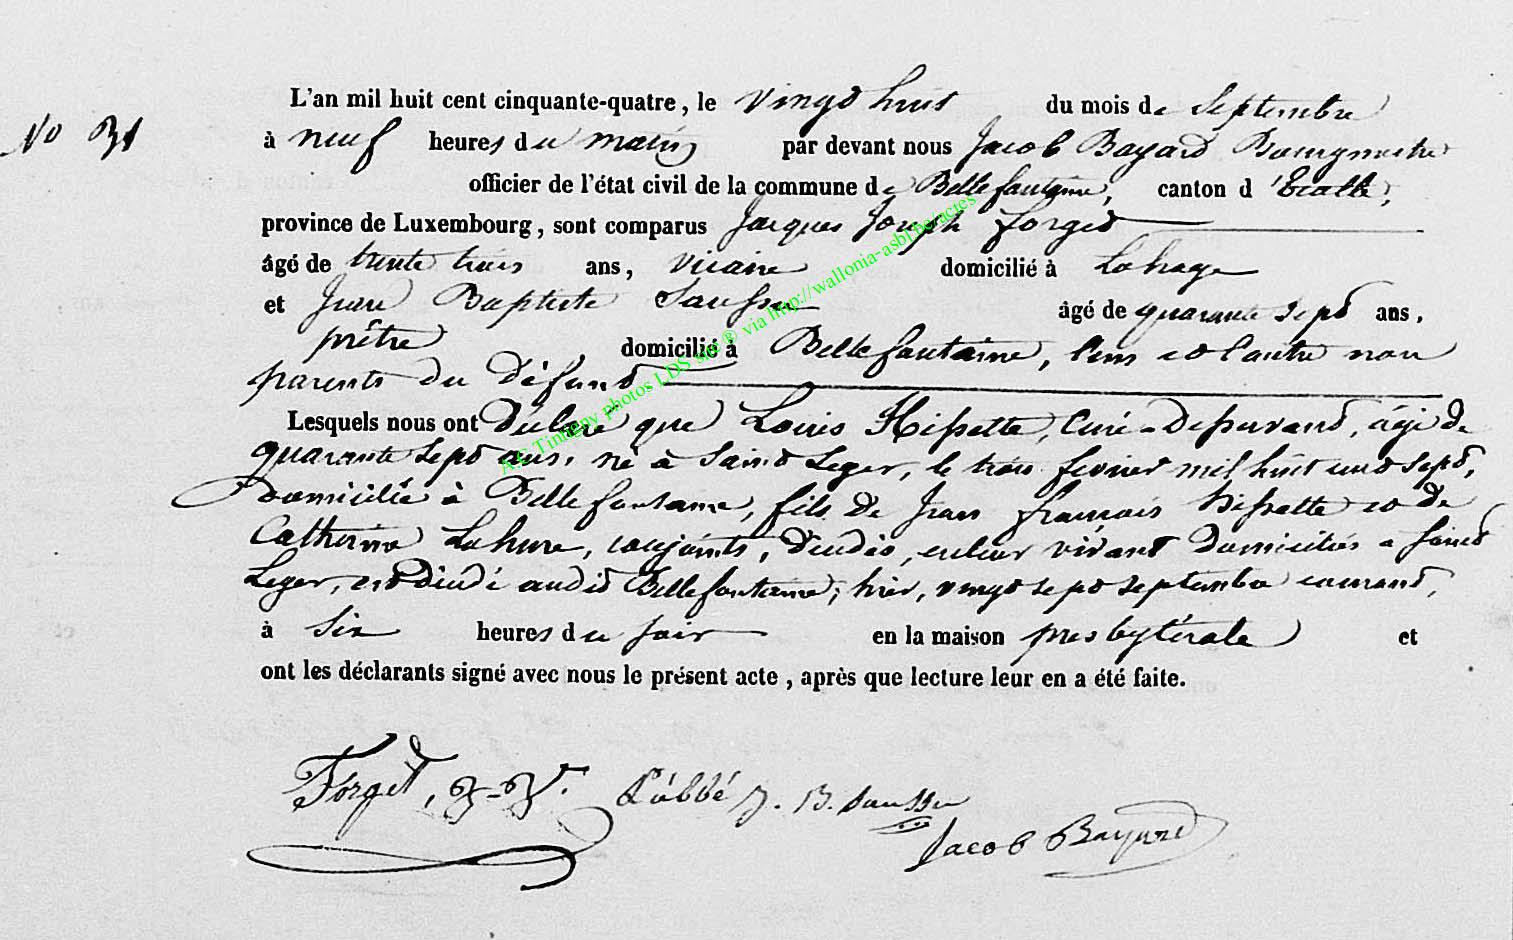 L'an mil huit cent cinquante-quatre, le vingt huit du mois de Septembre
No 31
à neuf heures du matin par devant nous Jacob Bayard Bourgmestre
officier de l'état civil de la commune de Bellefontaine, canton d'Etalle,
province de Luxembourg, sont comparus Jacques Joseph Forget
âgé de trente trois ans, vicaire domicilié à Lahage
et Jean Baptiste Sausse âgé de quarante sept ans,
prêtre domicilié à Bellefontaine, l'un et l'autre non
parents du défunt
Lesquels nous ont déclaré que Louis Hissette, Curé-Desservant, âgé de
quarante sept ans, né à Saint Leger, le trois fevrier mil huit cent sept,
domicilié à Bellefontaine, fils de Jean françois hissette et de
Catherine Lahure, conjoints, décédés, en leur vivant domiciliés a Saint
Leger, est décédé audit Bellefontaine, hier, vingt sept septembre courant,
à six heures du soir en la maison presbytérale et
ont les déclarants signé avec nous le présent acte, après que lecture leur en a été faite.
AG Tintigny photos LDS site ® via http://wallonia-asbl.be/actes
Forget, L'abbé J. B. Sausse
Jacob Bayard